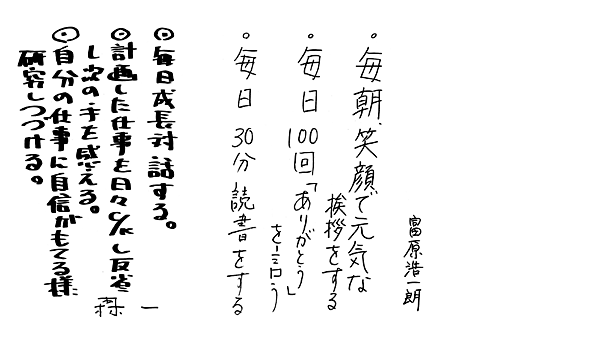 富原浩一朗
・毎朝、笑顔で元気な
挨拶をする
・毎日100回「ありがとう」
を言う
・毎日30分読書をする
◎毎日成長対話する。
◎計画した仕事を日々C/Kし反省
し次の手を感える。
◎自分の仕事に自信がもてる様
研究しつづける。
一